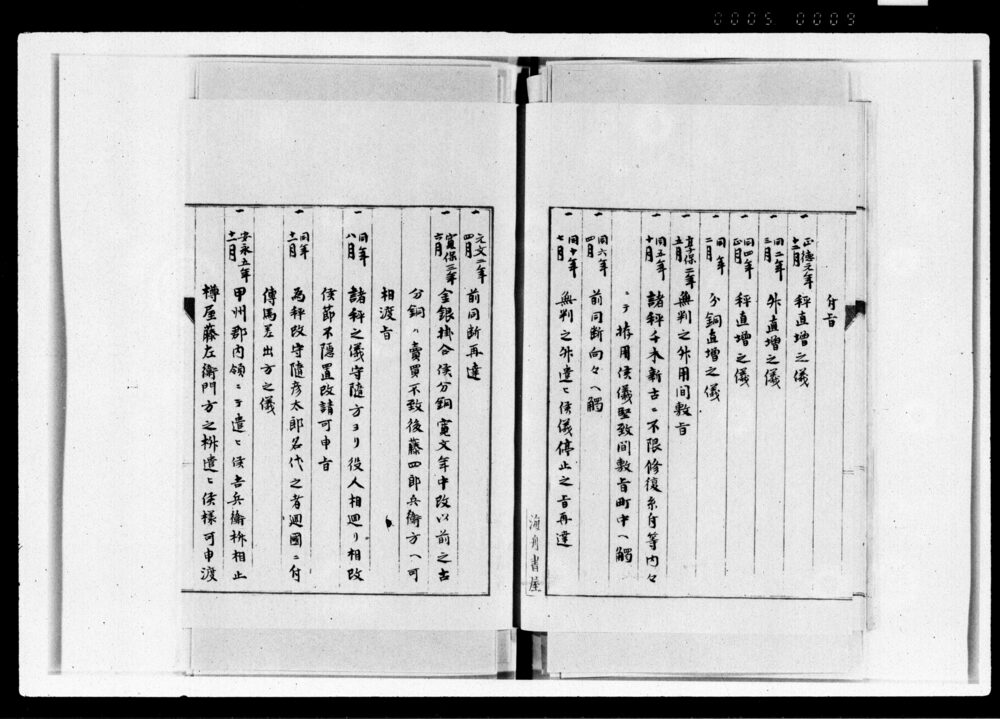 0005 0009
付旨
一 正徳元年十二月 秤直増之儀
一 同二年三月 外直増之儀
一 同四年正月 秤直増之儀
一 同年二月 分銅直増之儀
一 享保二年五月 無判之外用間敷旨
一 同五年十月 諸秤千木新古ニ不限修復糸付等内々
ニテ拵用候儀堅致間敷旨町中ヘ觸
一 同六年四月 前同断向々ヘ觸
一 同十年七月 無判之外遣ヒ候儀停止之旨再達
海舟書屋
一 元文二年四月 前同断再達
一 寛保三年六月 金銀掛合候分銅寛文年中改以前之古
分銅ハ賣買不致後藤四郎兵衛方ヘ可
相渡旨
一 同年八月 諸秤之儀守隨方ヨリ役人相廻リ相改
候節不隠置改請可申旨
一 同年十二月 為秤改守隨彦太郎名代之者廻國ニ付
傳馬差出方之儀
一 安永五年十二月 甲州郡内領ニテ遣ヒ候吉兵衛秤相止
樽屋藤左衛門方之枡遣ヒ候様可申渡